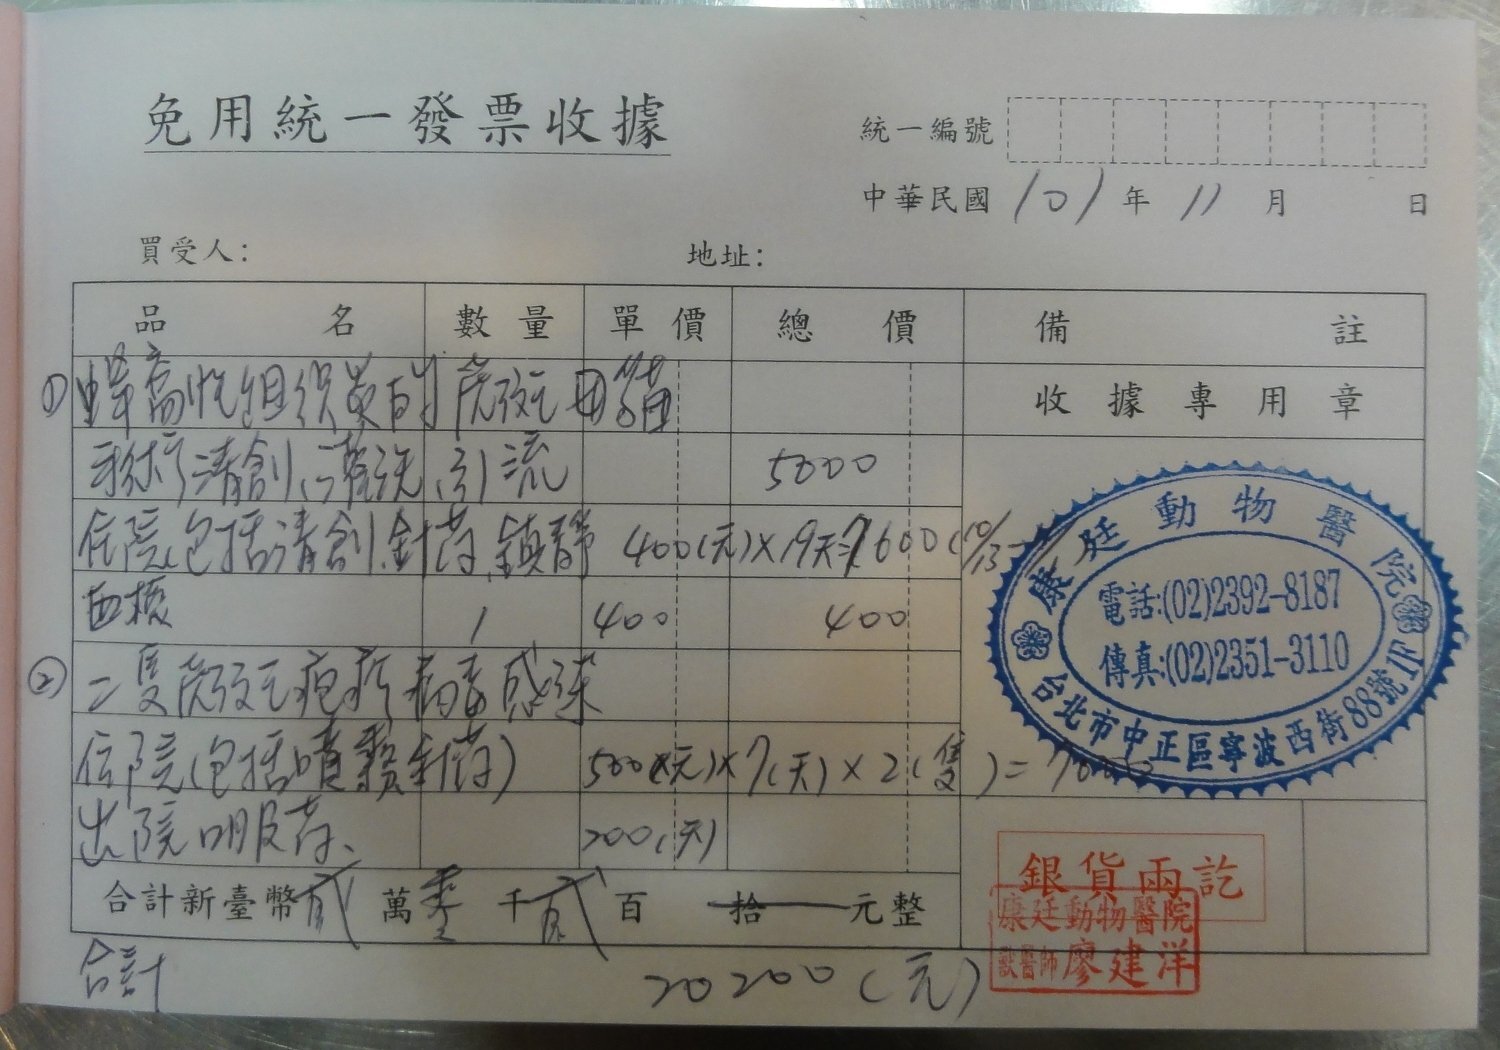 免用統一發票收據
統一編號
中華民國 101 年 11 月 日
買受人： 地址：
品名 數量 單價 總價 備註
① 蜂窩性組織炎的虎斑 貓
收據專用章
手術清創、灌洗、引流 5000
住院(包括清創.針葯.鎮靜 400(元)×19天=7600(10/13-
血檢 1 400 400
② 二隻虎斑 疱疹病毒感染
住院(包括噴霧針葯) 500(元)×7(天)×2(隻)=7000
出院口服葯、 200(元)
合計新臺幣貳萬零千貳百拾元整
合計 20200(元)
康廷動物醫院
電話:(02)2392-8187
傳真:(02)2351-3110
台北市中正區寧波西街88號1F
銀貨兩訖
康廷動物醫院
獸醫師廖建洋